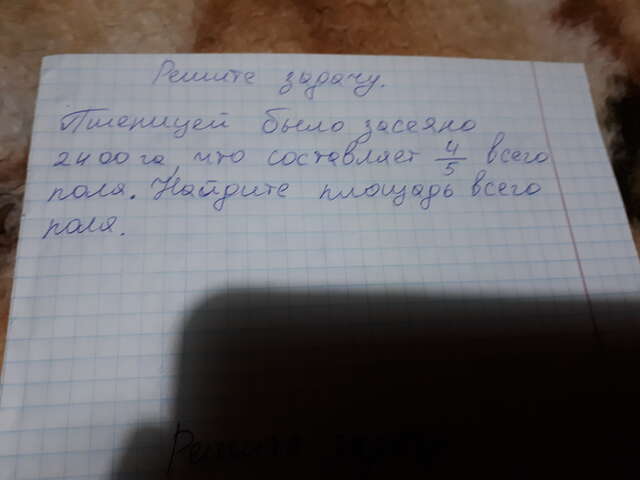 Решите задачу.
Пшеницей было засеяно
2400 га, что составляет 4/5 всего
поля. Найдите площадь всего
поля.
Решите задачу